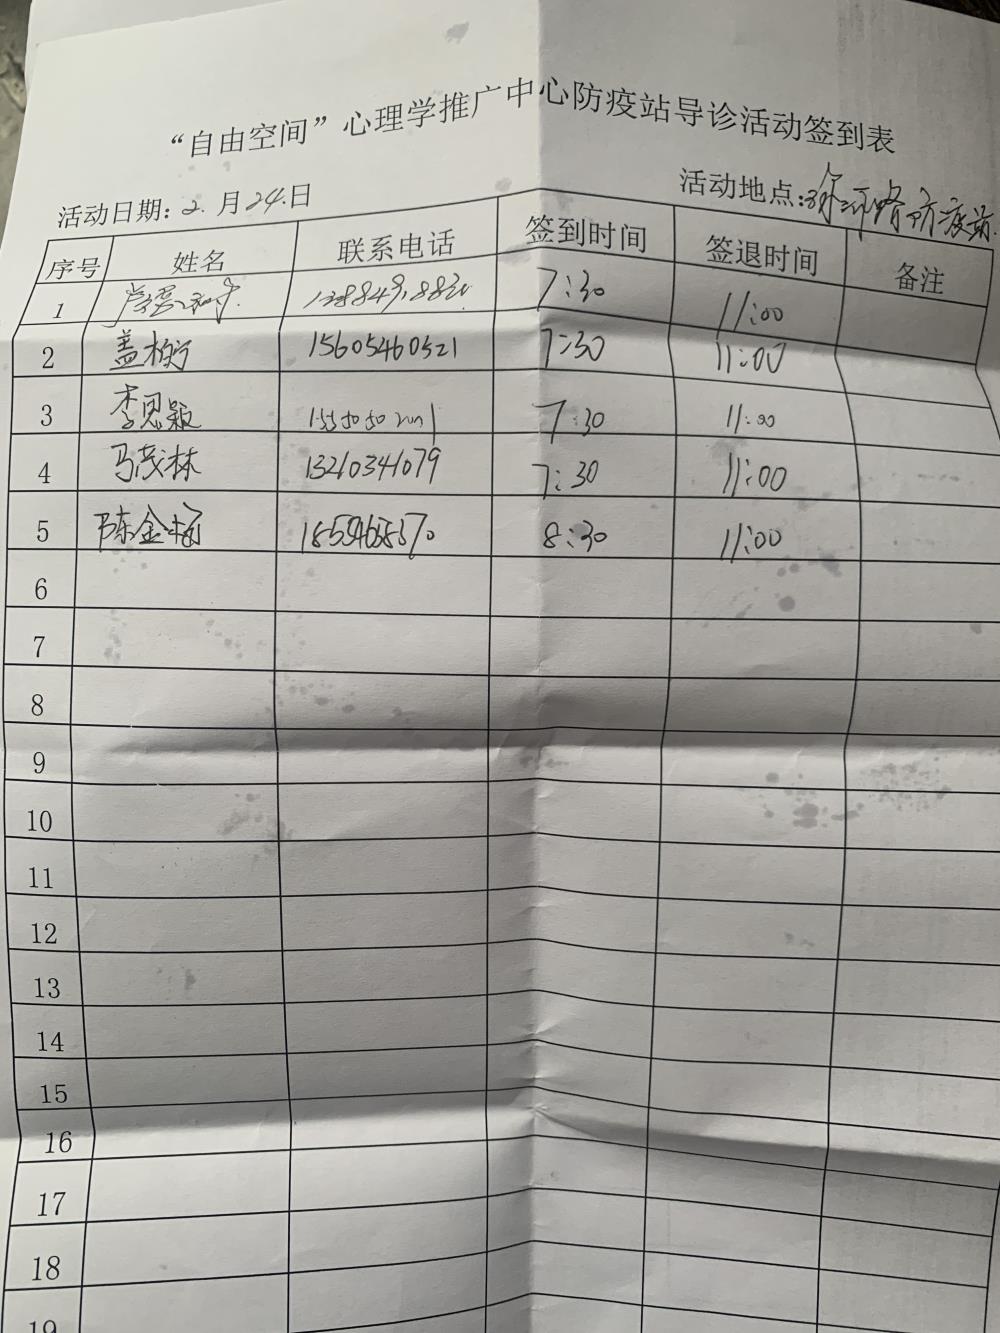 “自由空间”心理学推广中心防疫站导诊活动签到表
活动日期: 2. 月 24. 日 活动地点: 防疫站.
序号 姓名 联系电话 签到时间 签退时间 备注
1 7:30 11:00
2 盖柏宁 15605460521 7:30 11:00
3 李思颖 7:30 11:00
4 马茂林 13210341079 7:30 11:00
5 陈金梅 8:30 11:00
6
7
8
9
10
11
12
13
14
15
16
17
18
19